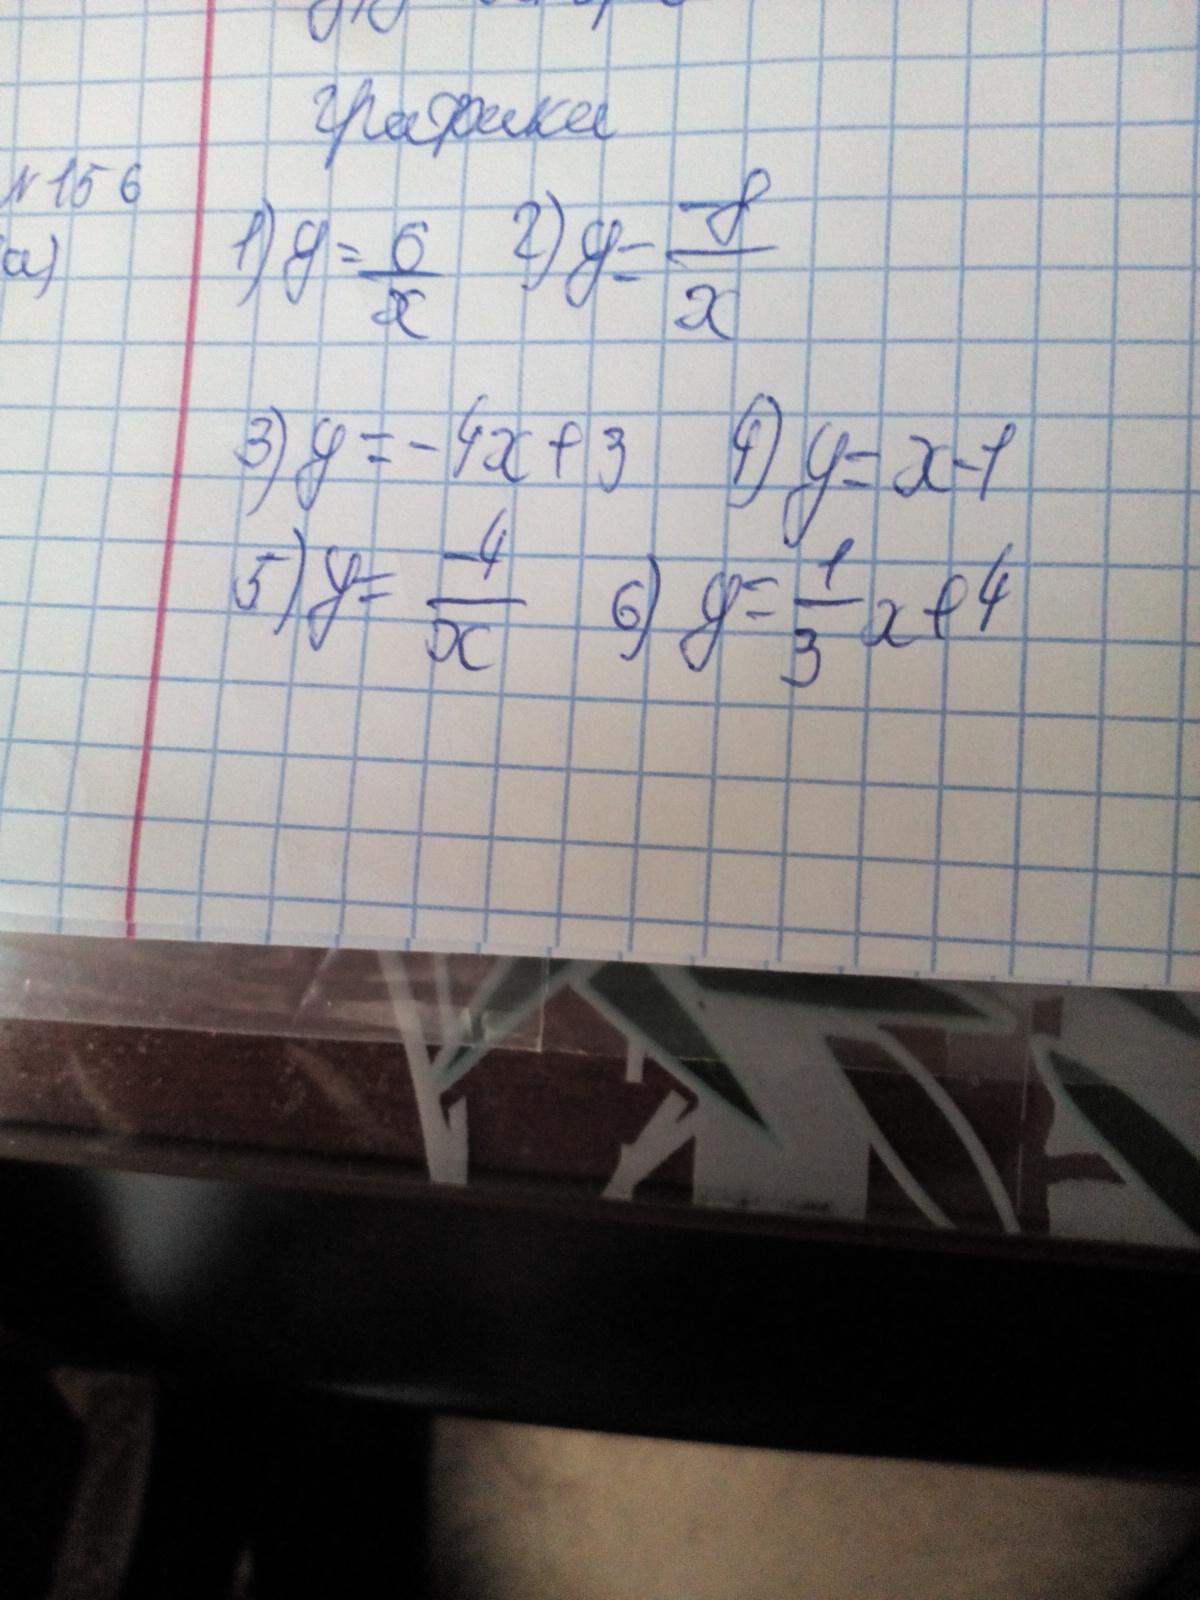 графики
№156
а)
1) y = 6/x 2) y = -8/x
3) y = -4x + 3 4) y = x - 1
5) y = -4/x 6) y = 1/3 x + 4